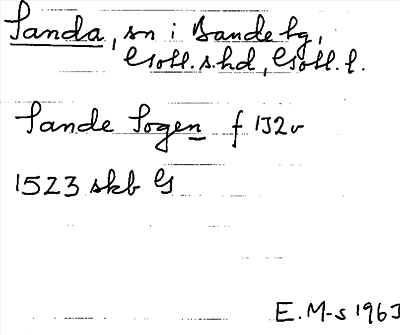 Sanda, sn i Bande tg,
Gotl.s.hd, Gotl.l.
Sande Sogen f 132v
1523 skb G
E.M-s 1963